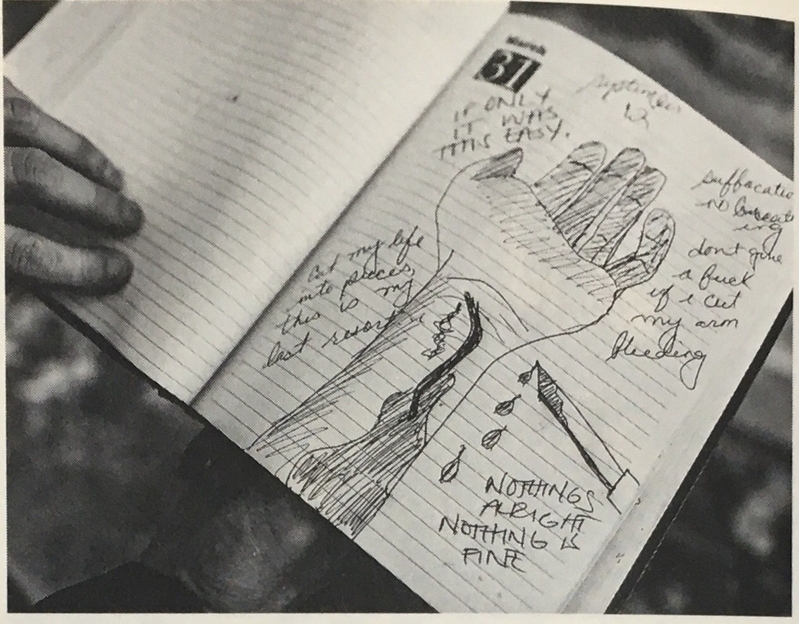 March
31
september
12
IF ONLY
IT WAS
THIS EASY.
suffocatio
n
ing
dont give
a fuck
if i cut
my arm
bleeding
cut my life
into pieces
this is my
last resort
NOTHINGS
ALRIGHT
NOTHING IS
FINE